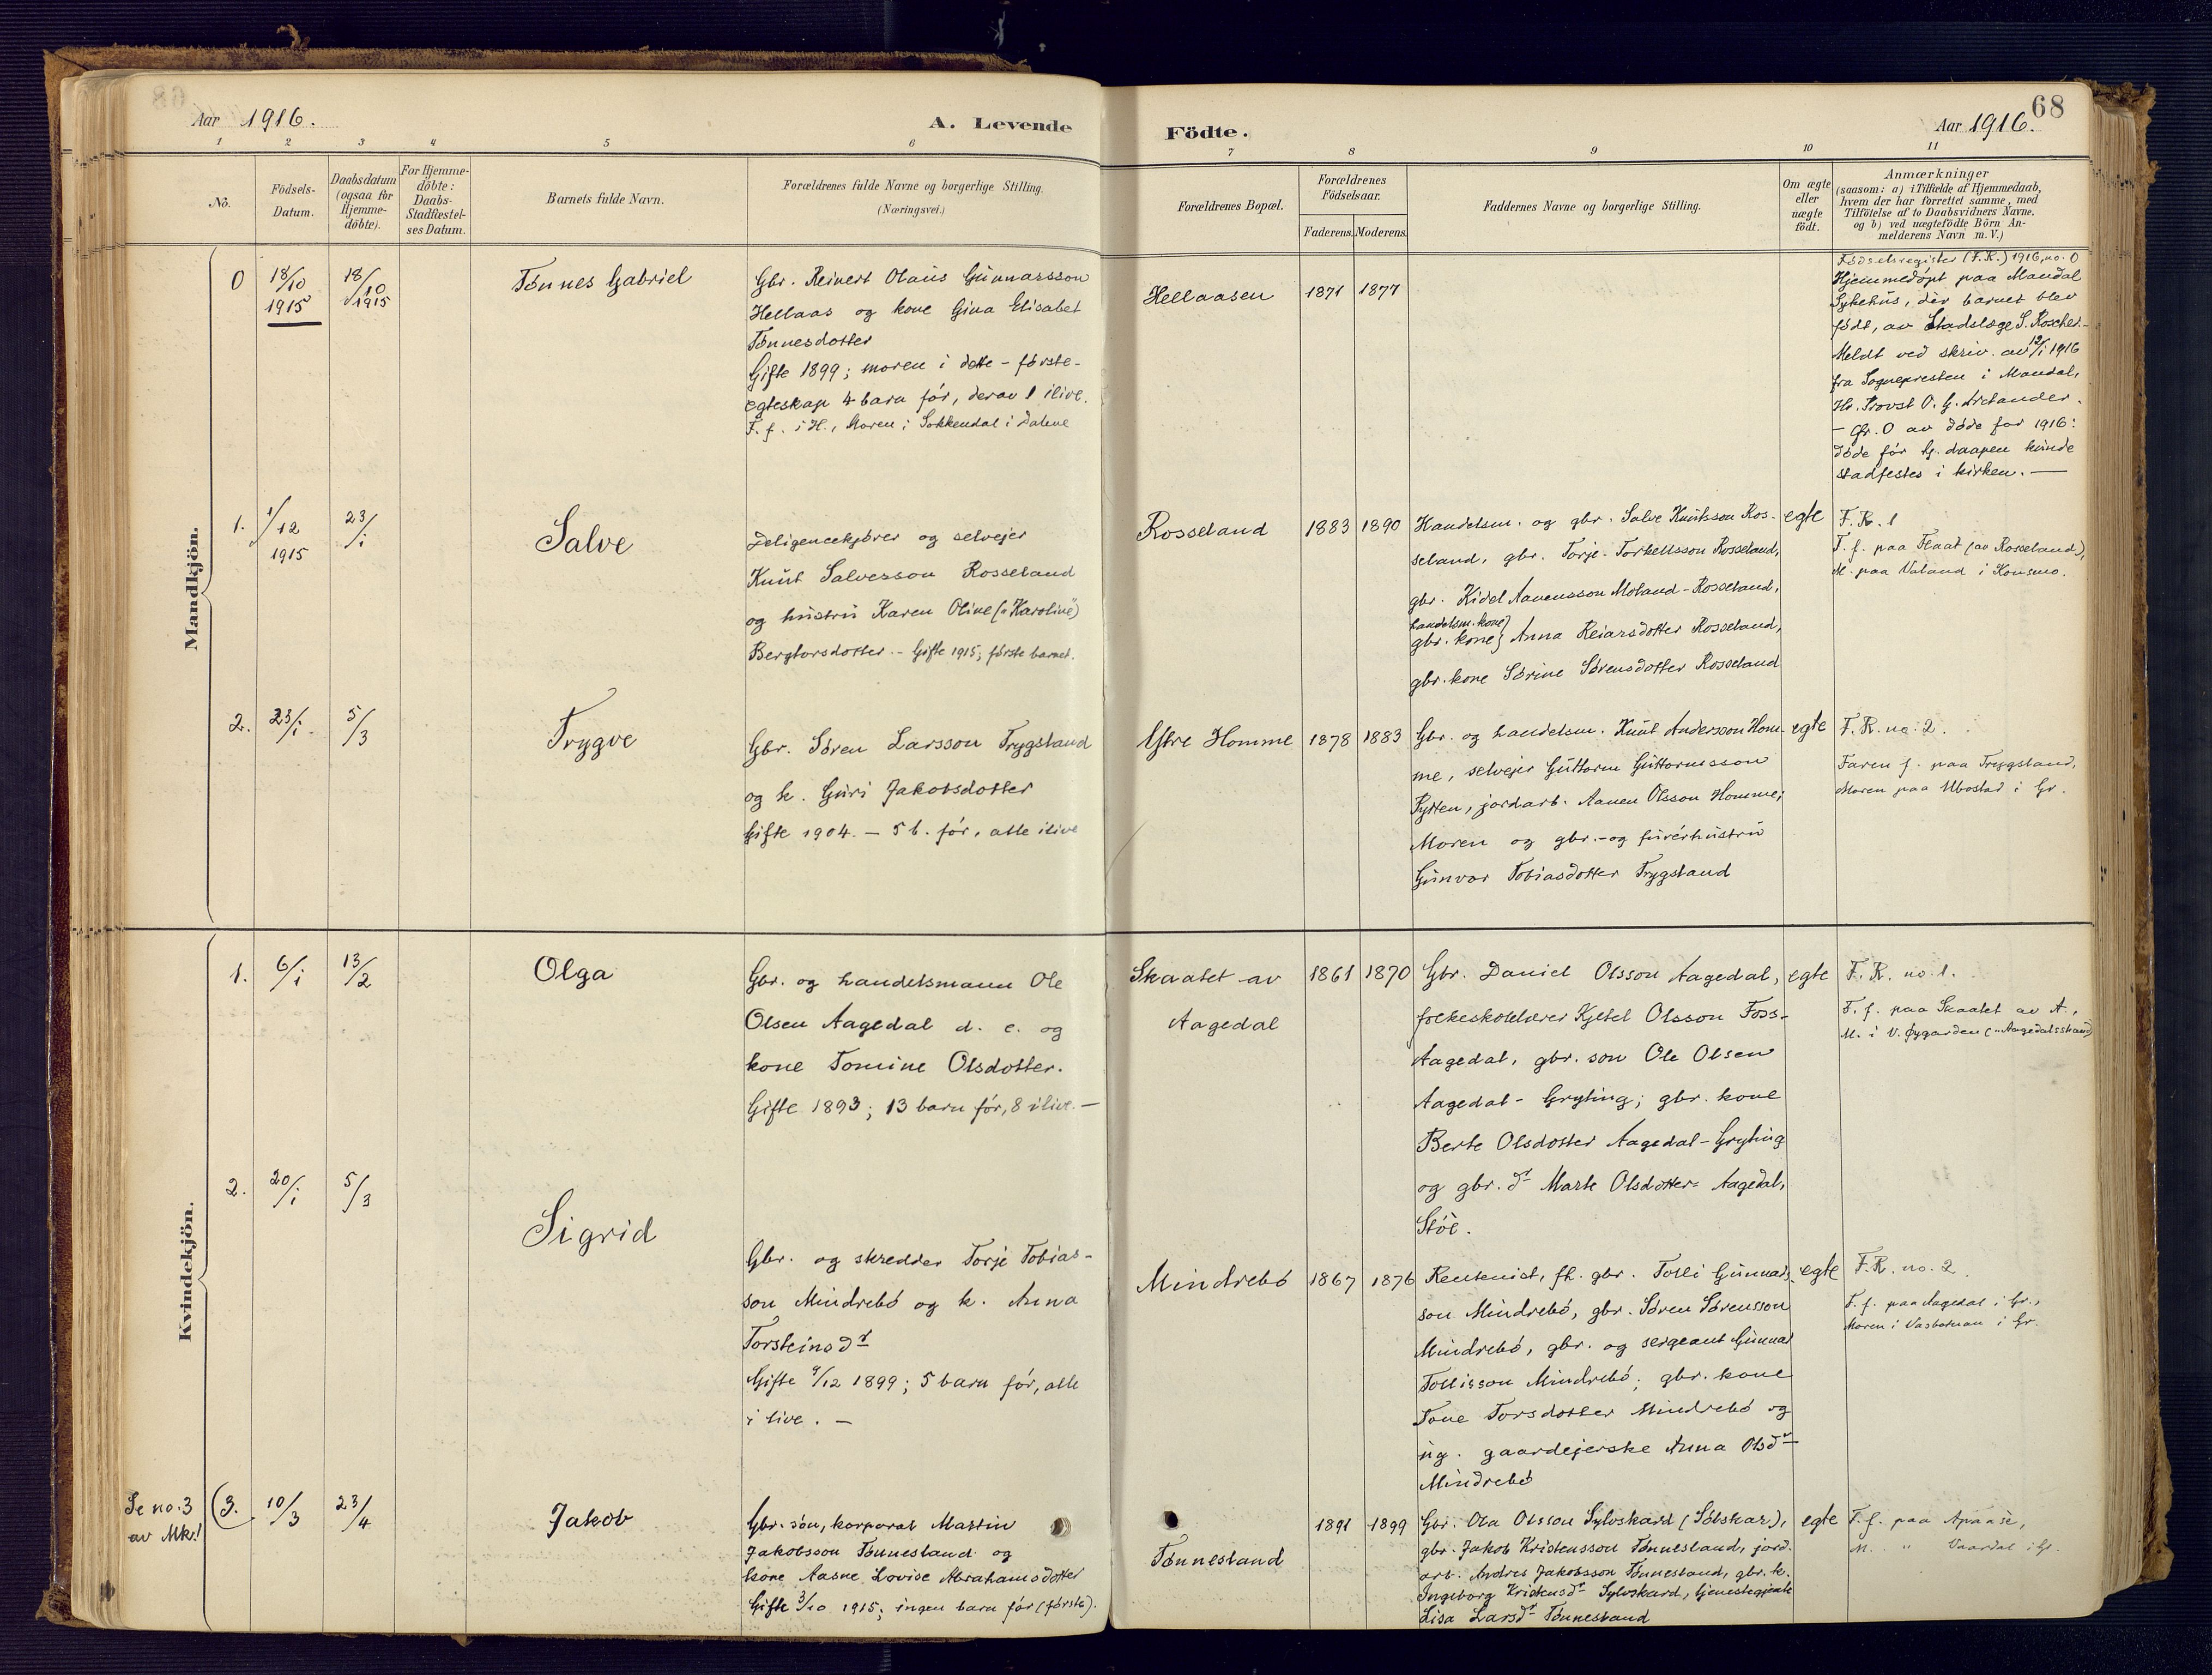 68
Aar 1916.
A. Levende
Födte.
Aar 1916.
1
2
3
4
5
6
7
8
9
10
11
No.
Födsels-
Datum.
Daabsdatum
(ogsaa for
Hjemme-
döbte).
For Hjemme-
döbte:
Daabs-
Stadfæstel-
ses Datum.
Barnets fulde Navn.
Forældrenes fulde Navne og borgerlige Stilling.
(Næringsvei.)
Forældrenes Bopæl.
Forældrenes
Födselsaar.
Faderens.
Moderens.
Faddernes Navne og borgerlige Stilling.
Om ægte
eller
uægte
födt.
Anmærkninger
(saasom: a) i Tilfælde af Hjemmedaab,
hvem der har forrettet samme, med
Tilföielse af to Daabsvidners Navne,
og b) ved uægtefödte Börn An-
melderens Navn m. V.)
Mandkjön.
0
18/10
1915
18/10
1915
Tønnes Gabriel
Gbr. Reinert Olaus Gunnarsson
Hellaas og kone Gina Elisabet
Tønnesdotter
Gifte 1899; moren i dette - første-
egteskap 4 barn før, derav 1 ilive.
F. f. i H., Moren i Sokkendal i Dalene
Hellaasen
1871
1877
Fødselsregister (F.R.) 1916, no. 0
Hjemmedøpt paa Mandal
Sykehus, der barnet blev
født, av Stadslæge S. Roscher.-
Meldt ved skriv. av 12/1 1916
fra Sognepresten i Mandal,
Hr. Provst O. G. Arctander.
- Gr. 0 av døde for 1916:
døde før hj. daapen kunde
stadfestes i kirken. —
1.
1/12
1915
23/1
Salve
Deligencekjører og selvejer
Knut Salvesson Rosseland
og hustru Karen Oline („Karoline")
Bergtorsdotter. - Gifte 1915; første barnet.
Rosseland
1883
1890
Handelsm. og gbr. Salve Knutsson Ros-
seland, gbr. Torje Torkellsson Rosseland,
gbr. Kidel Aanensson Moland-Rosseland,
handelsm. kone}
gbr. kone} Anna Reiarsdotter Rosseland,
gbr. kone Sørine Sørensdotter Rosseland
egte
F. R. 1
F. f. paa Flaat (av Rosseland),
M. paa Valand i Konsmo.
2.
23/1.
5/3
Trygve
Gbr. Søren Larsson Trygsland
og k. Guri Jakobsdotter
Gifte 1904. — 5 b. før, alle ilive
Ytre Homme
1878
1883
Gbr. og handelsm. Knut Andersson Hom-
me, selvejer Guttorm Guttormsson
Rytten, jordarb. Aanen Olsson Homme;
Moren og gbr.- og furérhustru
Gunvor Tobiasdotter Trygsland
egte
F. R. no. 2.
Faren f. paa Trygsland,
Moren paa Ubostad i Gr.
Kvindekjön.
1.
6/1
13/2
Olga
Gbr. og handelsmann Ole
Olsen Aagedal d. e. og
kone Tomine Olsdotter.
Gifte 1893; 13 barn før, 8 ilive. —
Skaalet av
Aagedal
1861
1870
Gbr. Daniel Olsson Aagedal,
folkeskolelærer Kjetel Olsson Foss-
Aagedal, gbr. søn Ole Olsen
Aagedal - Gryting; gbr. kone
Berte Olsdotter Aagedal-Gryting
og gbr. dr Marte Olsdotter Aagedal,
Støl.
egte
F. R. no. 1.
F. f. paa Skaalet av A.,
M. i V. Øygarden („Aagedalsstrand
2.
20/1
5/3
Sigrid
Gbr. og skredder Torje Tobias-
son Mindrebø og k. Anna
Torsteinsdr
Gifte 9/12 1899; 5 barn før, alle
i live. —
Mindrebø
1867
1876
Rentenist, fh. gbr. Tolli Gunnars-
son Mindrebø, gbr. Søren Sørensson
Mindrebø, gbr. og sergeant Gunnar
Tollisson Mindrebø; gbr. kone
Tone Torsdotter Mindrebø og
ug. gaardejerske Anna Olsdr
Mindrebø
egte
F. R. no. 2.
F. f. paa Aagedal i Gr.,
Moren i Vasbotnan i Gr.
Se no. 3
av Mk!
(3.
10/3
23/4
Jakob
Gbr. søn, korporal Martin
Jakobsson Tønnesland og
kone Aasne Lovise Abrahamsdotter
Gifte 3/10 1915; ingen barn før (første).
Tønnesland
1891
1899
Gbr. Ola Olsson Sylvskard (Sølskar),
gbr. Jakob Kristensson Tønnesland, jord.
arb. Andres Jakobsson Tønnesland, gbr. k.
Ingeborg Kristensdr Sylvskard, tjenestegjente
Lisa Larsdr Tønnesland
egte
F. f. paa
M. " Vaardal i Gr.